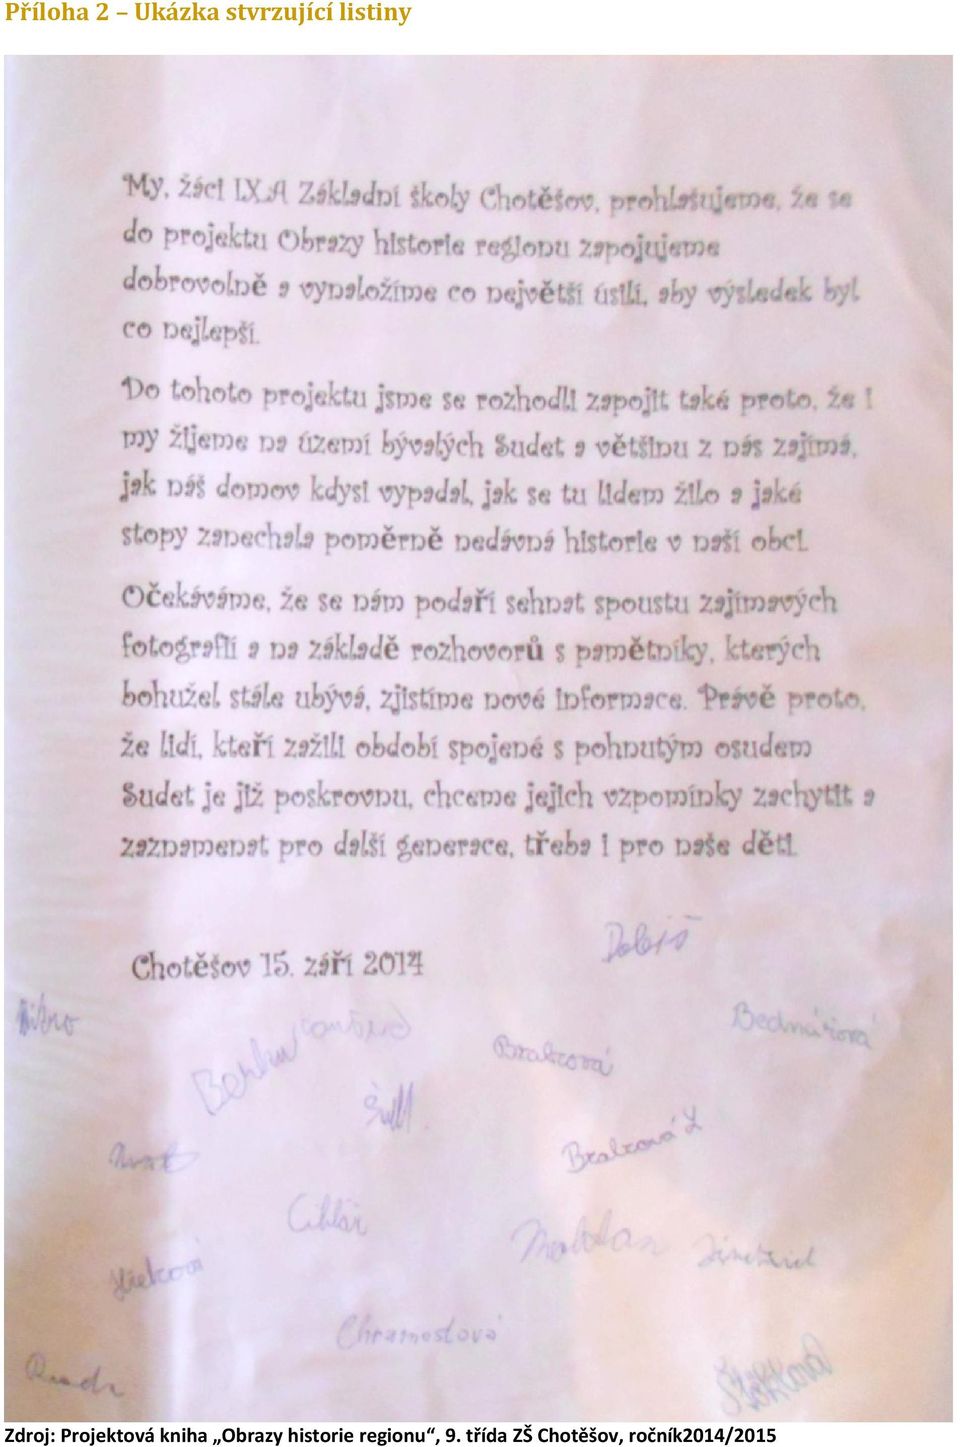 Příloha 2 – Ukázka stvrzující listiny
My, žáci IX.A Základní školy Chotěšov, prohlašujeme, že se
do projektu Obrazy historie regionu zapojujeme
dobrovolně a vynaložíme co největší úsilí, aby výsledek byl
co nejlepší.
Do tohoto projektu jsme se rozhodli zapojit také proto, že i
my žijeme na území bývalých Sudet a většinu z nás zajímá,
jak náš domov kdysi vypadal, jak se tu lidem žilo a jaké
stopy zanechala poměrně nedávná historie v naší obci.
Očekáváme, že se nám podaří sehnat spoustu zajímavých
fotografií a na základě rozhovorů s pamětníky, kterých
bohužel stále ubývá, zjistíme nové informace. Právě proto,
že lidí, kteří zažili období spojené s pohnutým osudem
Sudet je již poskrovnu, chceme jejich vzpomínky zachytit a
zaznamenat pro další generace, třeba i pro naše děti.
Dobiš
Chotěšov 15. září 2014
Bednářová
Brabcová
Brabcová Z
Cihlář
Chramostová